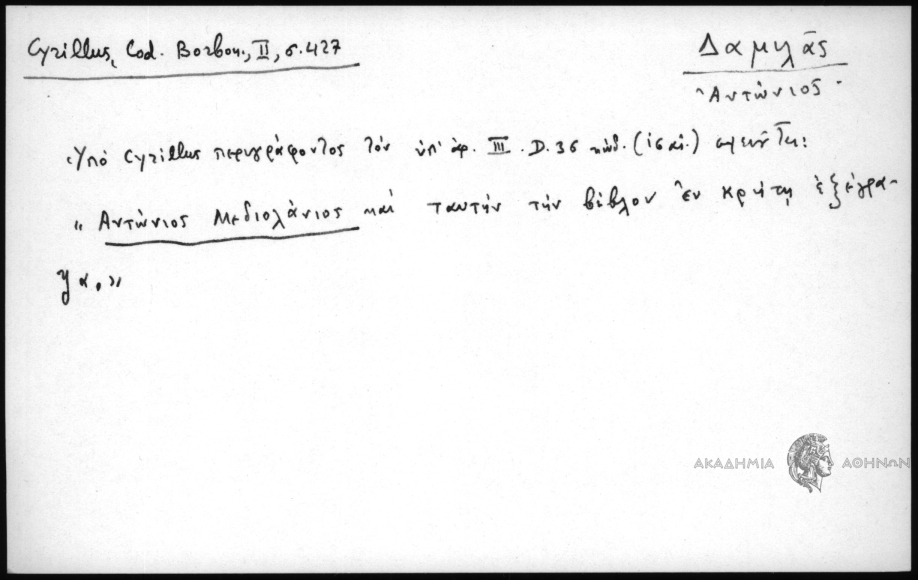 Cyrillus, Cod. Borbon., II, σ. 427
Δαμιλᾶς
Ἀντώνιος
Ὑπὸ Cyrillus περιγράφοντος τὸν ὑπ' ἀρ. III. D. 36 κώδ. (ις αἰ.)
« Ἀντώνιος Μεδιολάνιος καὶ ταυτὴν τὴν βίβλον ἐν Κρήτῃ ἐξέγρα-
ψα. »
ΑΚΑΔΗΜΙΑ ΑΘΗΝΩΝ